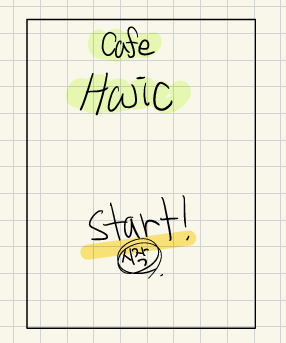 Cafe
Hwic
start!
시작